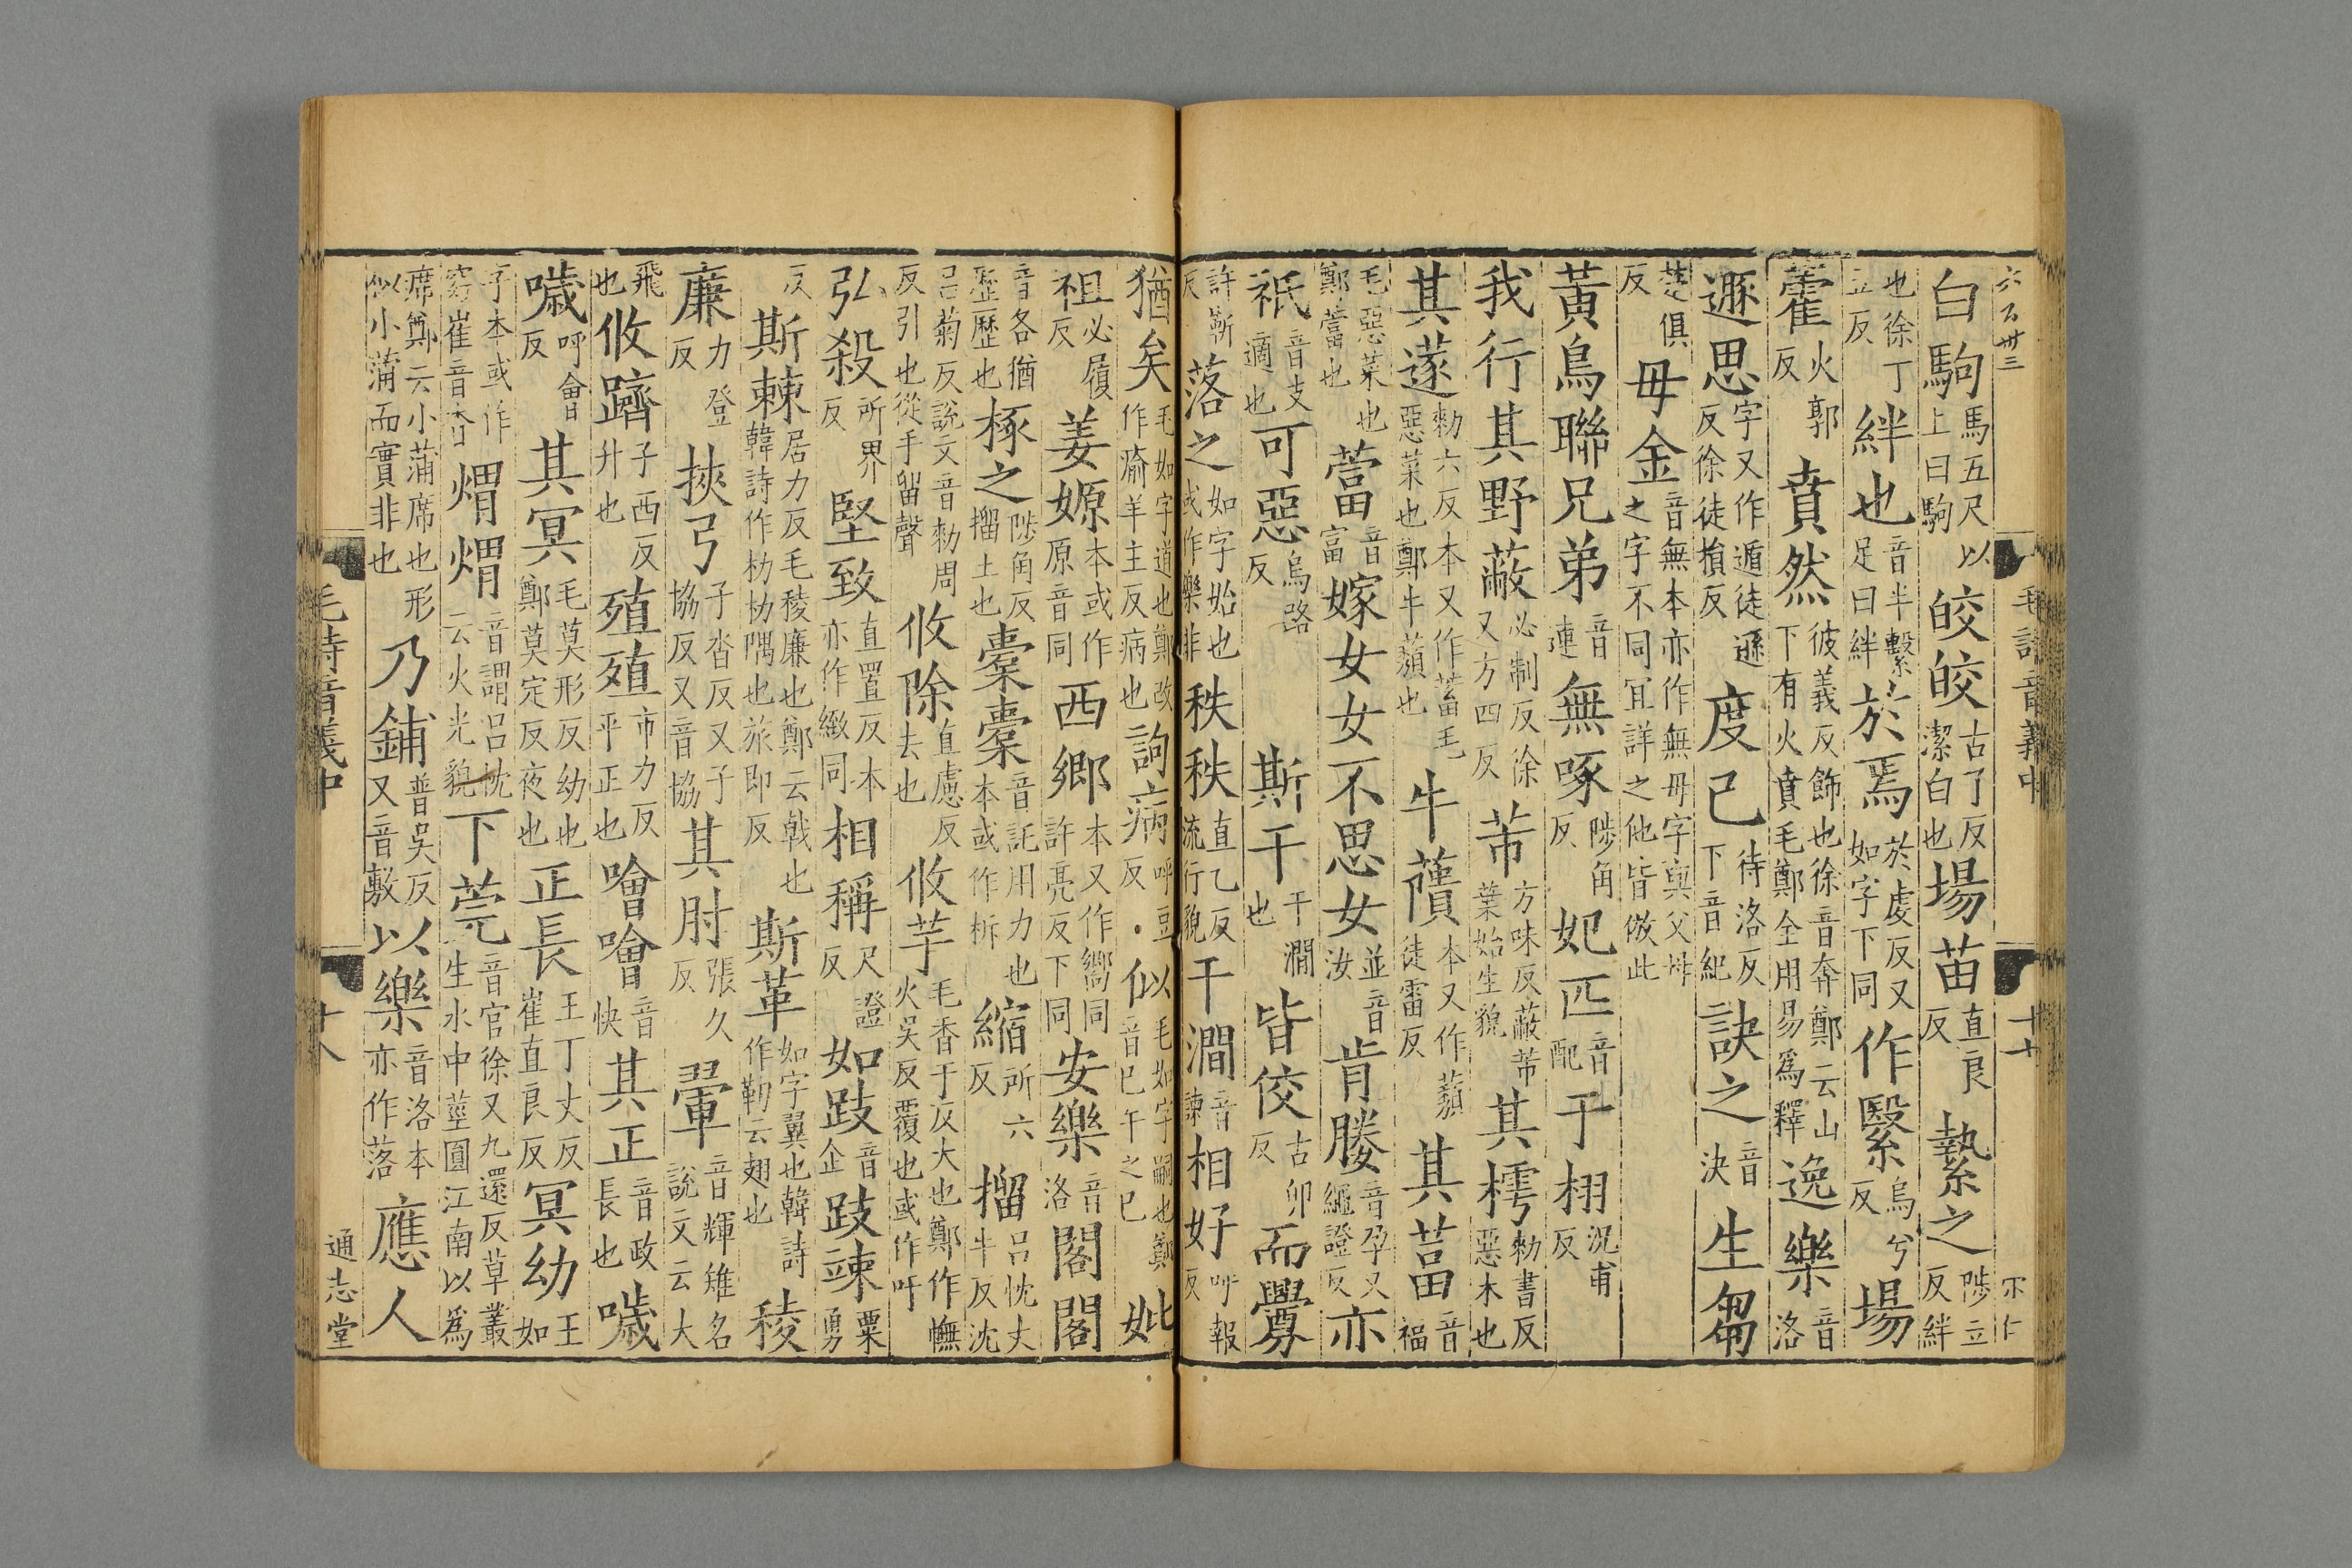 白駒馬五尺以上曰駒皎皎古了反潔白也場苗直良反縶之陟立反絆
也徐丁立反絆也音半繫足曰絆於焉於虔反又如字下同作繄烏兮反場
藿火郭反賁然彼義反飾也徐音奔鄭云山下有火賁毛鄭全用易為釋逸樂音洛
遯思字又作遁徒遜反徐徒損反度已待洛反下音紀訣之音決生芻
楚俱反毋金音無本亦作無毋字與父母之字不同宜詳之他皆倣此
黃鳥聯兄弟音連無啄陟角反妃匹音配于栩況甫反
我行其野蔽必制反徐又方四反芾方味反蔽芾葉始生貌其樗勑書反惡木也
其蓫勑六反本又作蓄毛惡菜也鄭牛蘈也牛藬本又作蘈徒雷反其葍音福
毛惡菜也鄭䔰也䔰音富嫁女女不思女並音汝肯媵音孕又繩證反亦
祇音支適也可惡烏路反斯干干澗也皆佼古卯反而釁
許靳反落之如字始也或作樂非秩秩直乙反流行貌干澗音諫相好呼報反
猶矣毛如字道也鄭改作瘉羊主反病也詬病呼豆反似毛如字嗣也鄭音巳午之巳妣
祖必履反姜嫄本或作原音同西鄉本又作嚮同許亮反下同安樂音洛閣閣
音各猶歷歷也椓之陟角反㩅土也橐橐音託用力也本或作柝縮所六反㩅呂忱丈牛反沈
呂菊反說文音勑周反引也從手留聲攸除直慮反去也攸芋毛香于反大也鄭火吳反覆也或作吁作幠
弘殺所界反堅致直置反本亦作緻同相稱尺證反如跂音企跂竦粟勇
反斯棘居力反毛稜廉也鄭云戟也韓詩作朸朸隅也旅即反斯革如字翼也韓詩作勒云翅也稜
廉力登反挾弓子沓反又子協反又音協其肘張久反翬音輝雉名說文云大
飛也攸躋子西反升也殖殖市力反平正也噲噲音快其正音政長也噦
噦呼會反其冥毛莫形反幼也鄭莫定反夜也正長王丁丈反崔直良反冥幼王如
字本或作窈崔音杳煟煟音謂呂忱云火光貌下莞音官徐又九還反草叢生水中莖圓江南以為
席鄭云小蒲席也形似小蒲而實非也乃鋪普吳反又音敷以樂音洛本亦作落應人
毛詩音義中
十八
通志堂